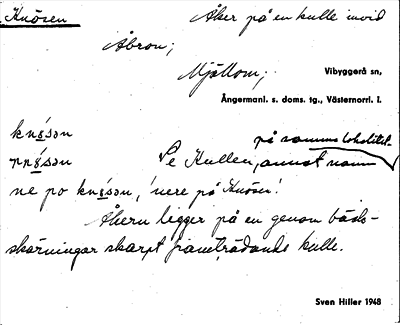 Knösen Åker på en kulle invid
Åbron;
Mjällom; Vibyggerå sn,
Ångermanl. s. doms. tg., Västernorrl. l.
knø̀sən på samma lokalitet.
nø̀sən Se Kullen, annat namn
ne po knø̀sən, 'nere på Knösen'.
Åkern ligger på en genom bäck-
skärningar skarpt framträdande kulle.
Sven Hiller 1948